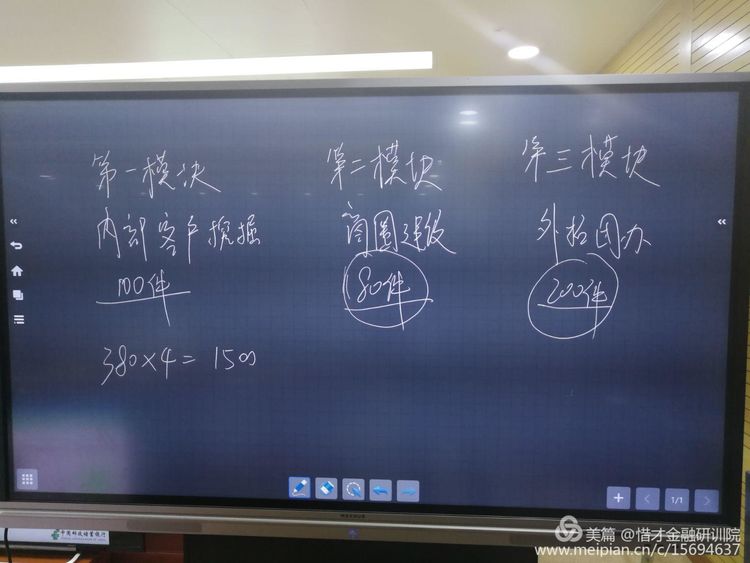 第一模块
内部客户挖掘
100件
380×4=1500
第二模块
商圈建设
80件
第三模块
外拓团办
200件
1/1
中国邮政储蓄银行
美篇 @惜才金融研训院
www.meipian.cn/c/15694637